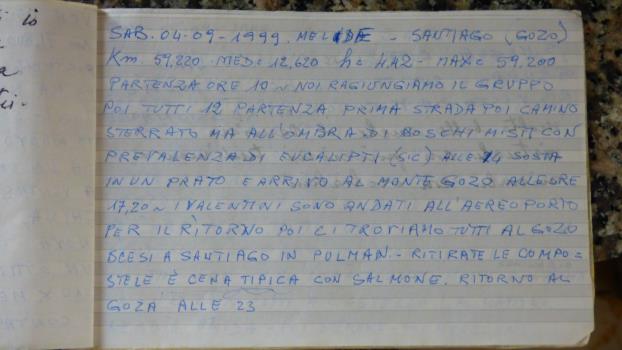 is
a
SAB. 04-09-1999. MELIDE - SANTIAGO (GOZO)
Km. 59,220. MED: 12,620 h: 4,42 - MAX: 59,200
PARTENZA ORE 10 ~ NOI RAGIUNGIAMO IL GRUPPO
POI TUTTI 12 PARTENZA PRIMA STRADA POI CAMINO
STERRATO MA ALL'OMBRA DI BOSCHI MISTI CON
PREVALENZA DI EUCALIPTI (SIC) ALLE 14 SOSTA
IN UN PRATO E ARRIVO AL MONTE GOZO ALLE ORE
17,20 ~ I VALENTINI SONO ANDATI ALL'AEREOPORTO
PER IL RITORNO POI CI TROVIAMO TUTTI AL GOZO
SCESI A SANTIAGO IN PULMAN - RITIRATE LE COMPO =
STELE È CENA TIPICA CON SALMONE. RITORNO AL
GOZA ALLE 23